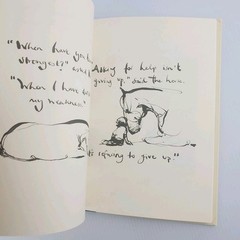 "When have you
strongest?" asked
"When I have
my weakness"
Asking for help isn't
giving up," said the horse
refusing to give up."